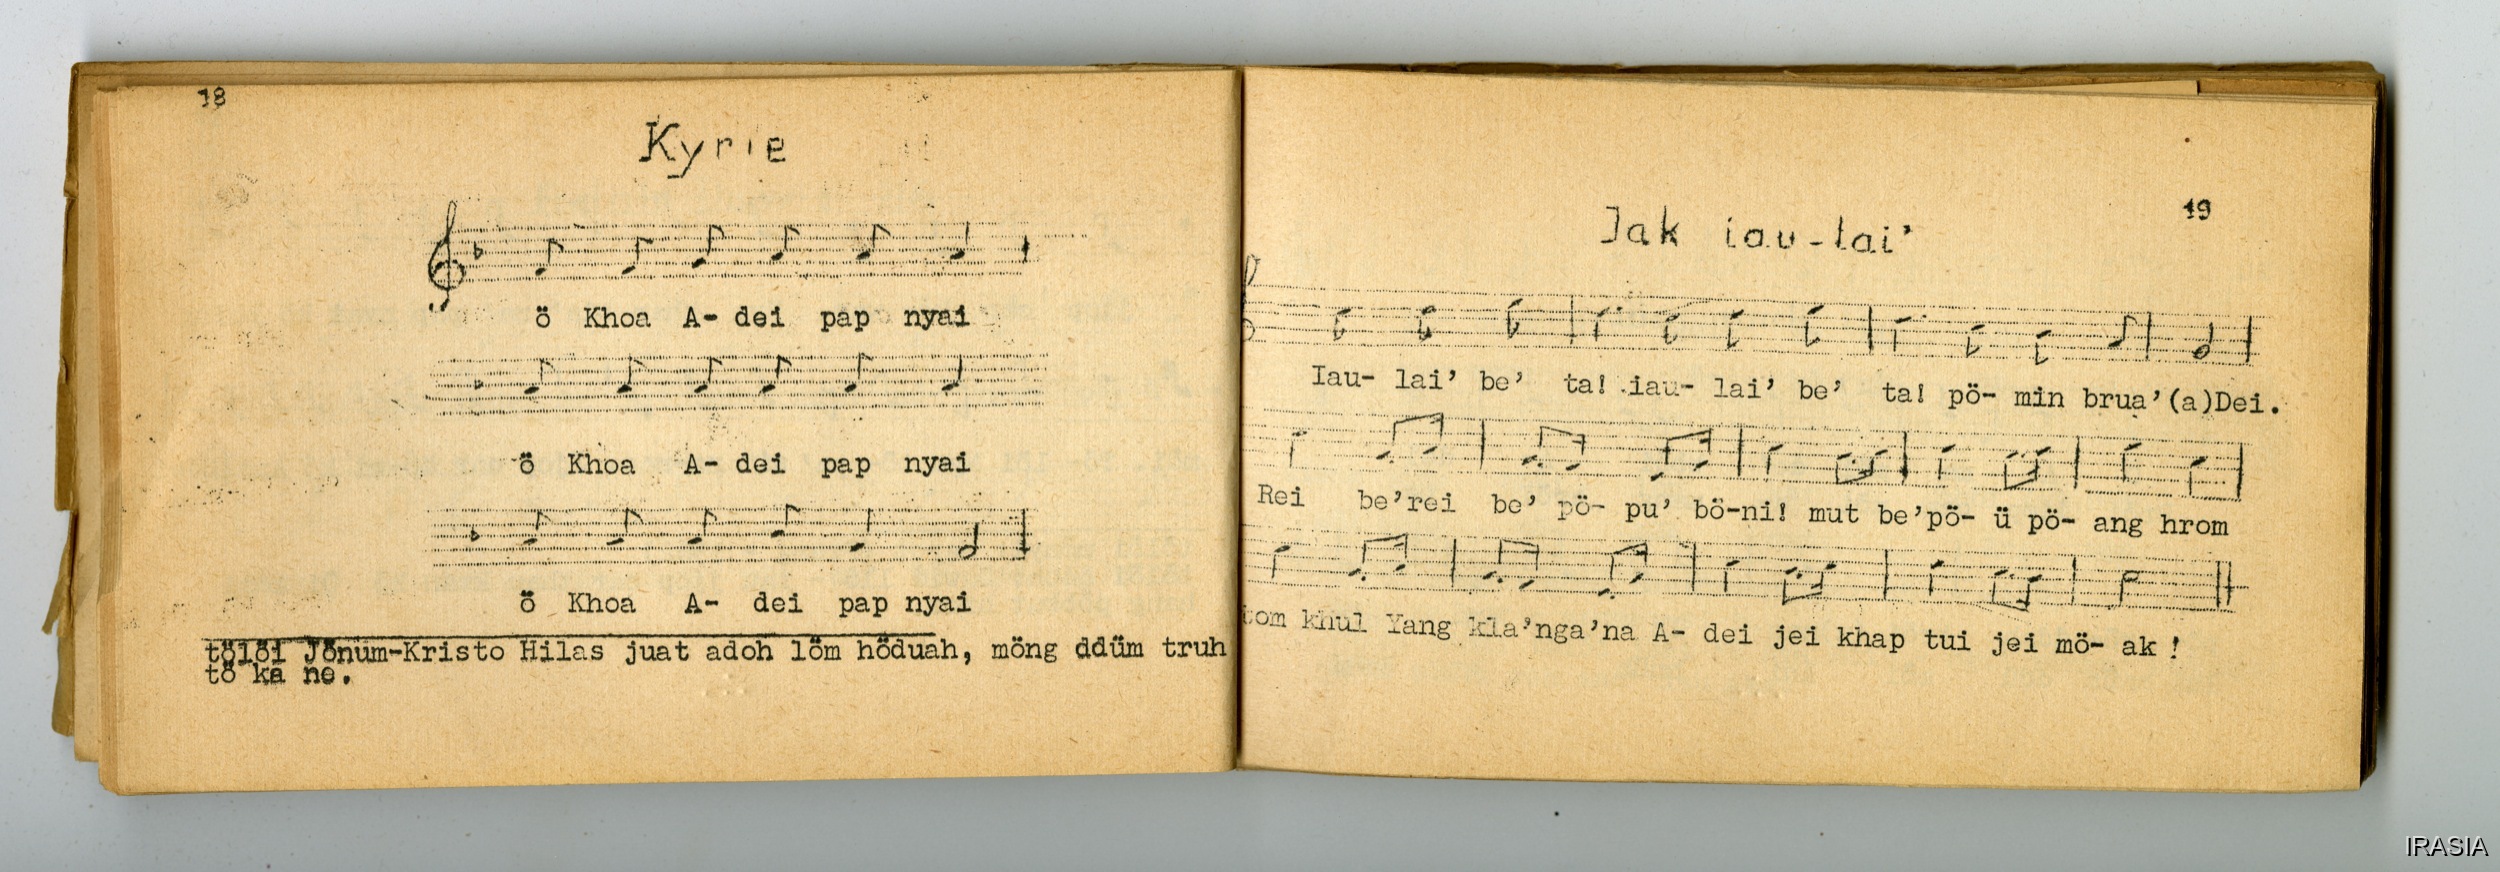 18
Kyrie
ö Khoa A- dei pap nyai
ö Khoa A- dei pap nyai
ö Khoa A- dei pap nyai
tölöi Jönum-Kristo Hilas juat adoh löm höduah, möng ddüm truh
tö ka ne.
19
Jak iau-lai'
Iau- lai' be' ta! iau- lai' be' ta! pö- min brua'(a)Dei.
Rei be'rei be' pö- pu' bö-ni! mut be'pö- ü pö- ang hrom
tom khul Yang kla'nga'na A- dei jei khap tui jei mö- ak !
IRASIA